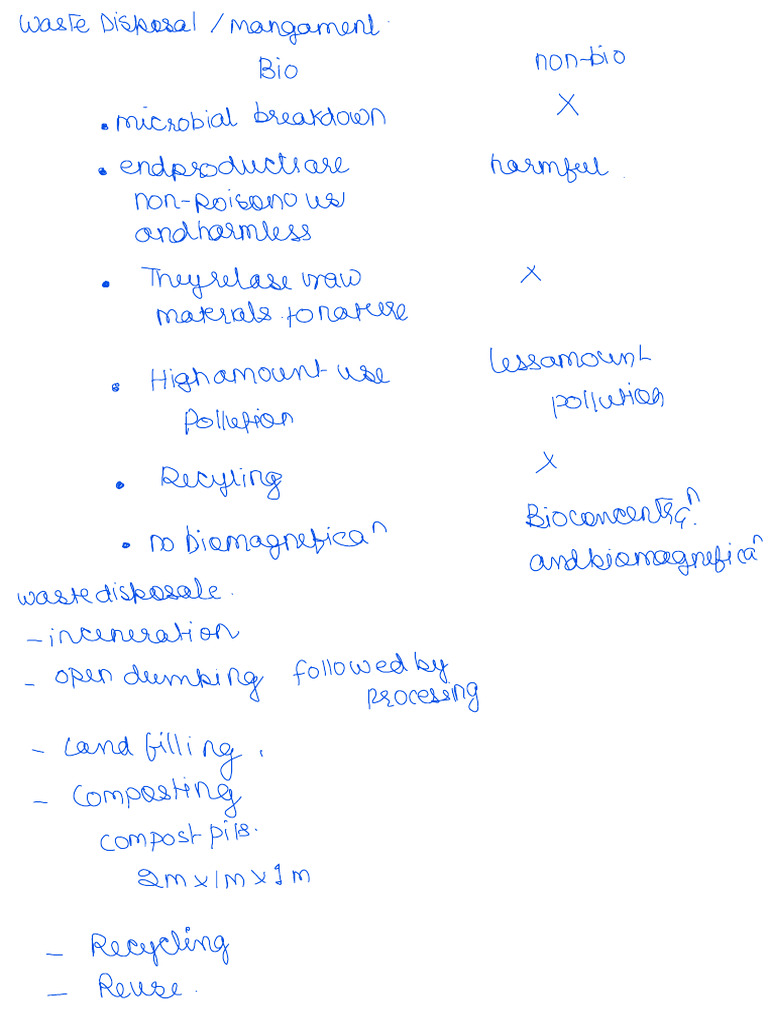 waste Disposal / mangament.
Bio non-bio
• microbial breakdown X
• endproductsare harmful.
non-poisonous
and harmless
• They relase raw X
materials to nature
• High amount use less amount
Pollution pollution
• Recyling X
• no biomagneficaⁿ Bioconcentraⁿ.
and biomagneficaⁿ
waste disposale.
- inceneration
- open dumping followed by
processing
- Land filling.
- Composting
compost pits.
2m x 1m x 1m
- Recycling
- Reuse.